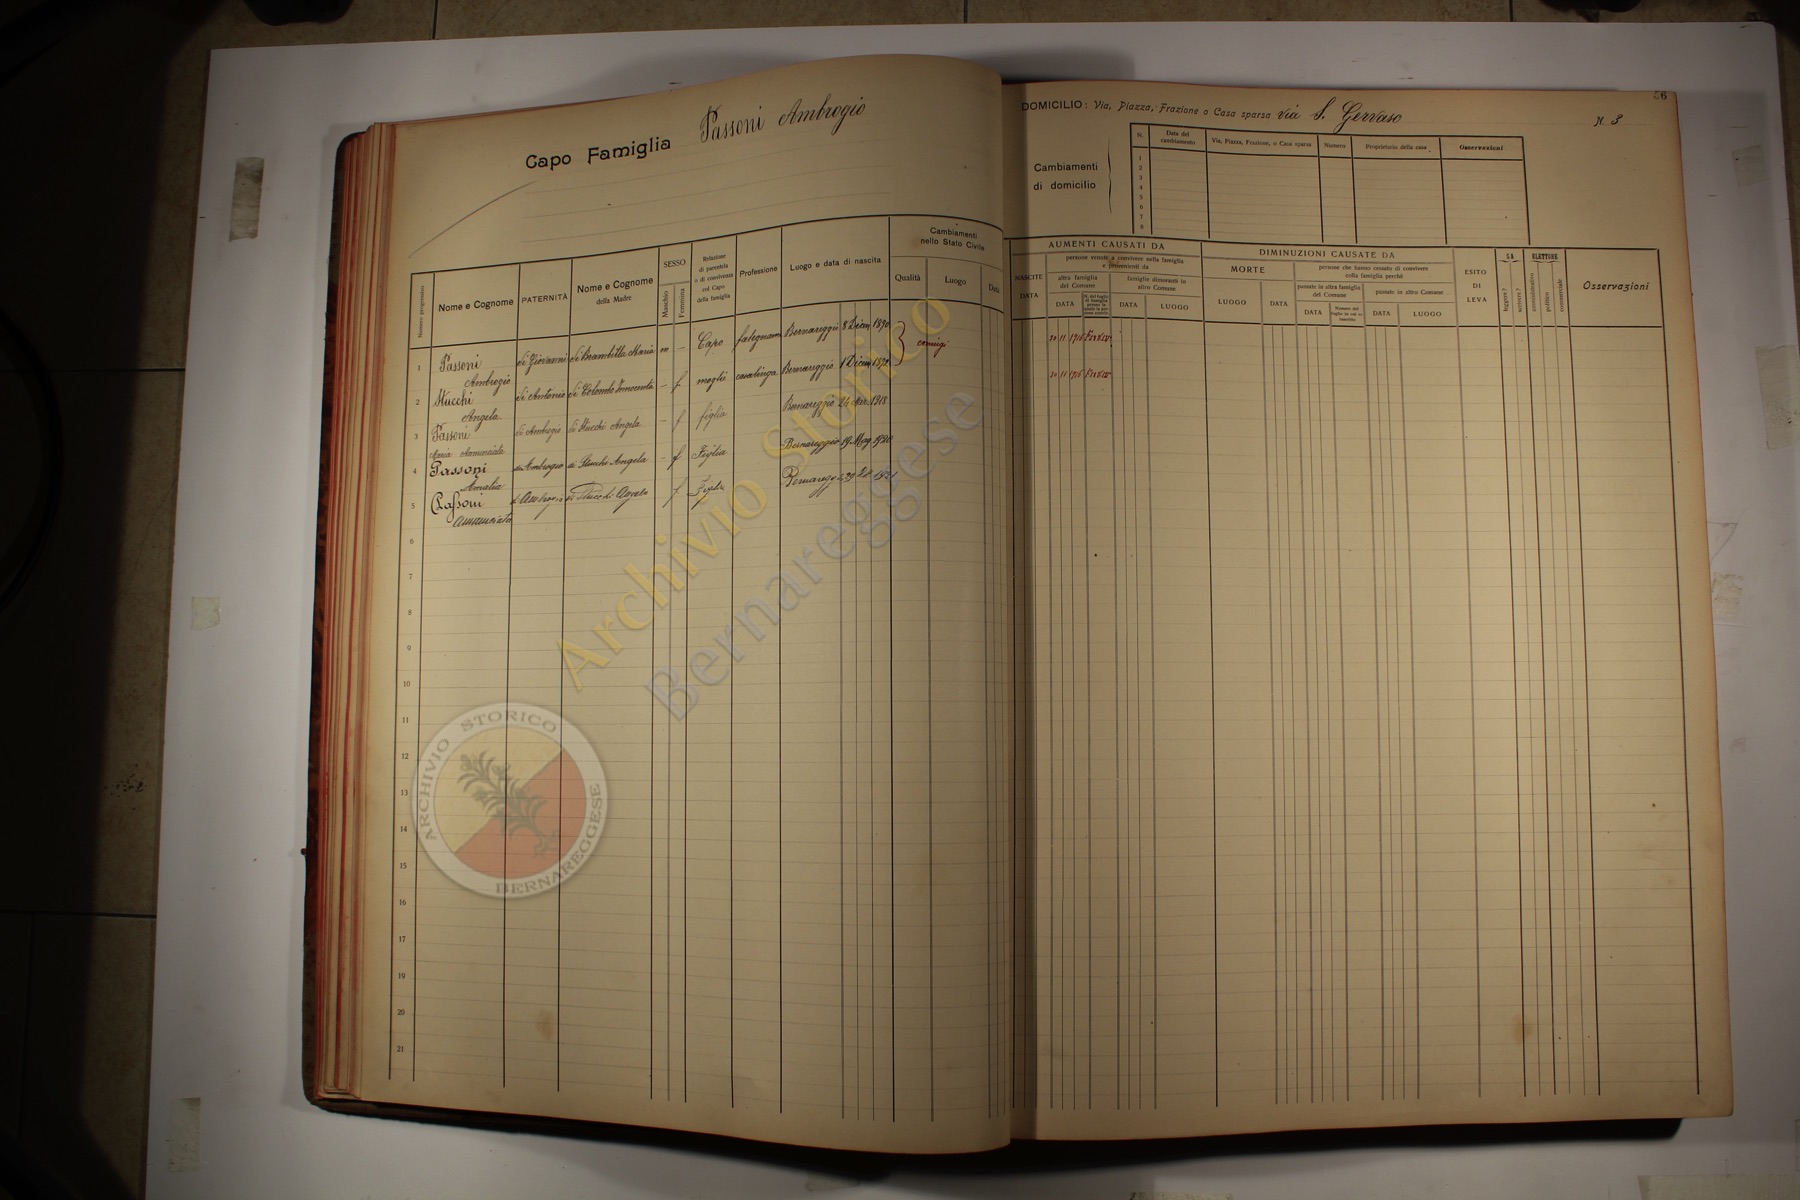 Capo Famiglia Passoni Ambrogio
Numero progressivo
Nome e Cognome
PATERNITÀ
Nome e Cognome
della Madre
SESSO
Maschio
Femmina
Relazione
di parentela
o di convivenza
col Capo
della famiglia
Professione
Luogo e data di nascita
Cambiamenti
nello Stato Civile
Qualità
Luogo
Data
1 Passoni di Giovanni di Brambilla Maria m - Capo falegname Bernareggio 8 Dicem 1890
Ambrogio
coniugi
2 Stucchi di Antonio di Colombo Innocenta - f moglie casalinga Bernareggio 1 Dicem 1892
Angela
3 Passoni di Ambrogio di Stucchi Angela - f figlia Bernareggio 24 1918
Maria Annunciata
4 Passoni di Ambrogio di Stucchi Angela - f Figlia Bernareggio 19 Mag 1920
Amalia
5 Passoni di Ambrogio di Stucchi Angela f. Figlia Bernaregg
Annunciata
6
7
8
9
10
11
12
13
14
15
16
17
18
19
20
21
56
DOMICILIO: Via, Piazza, Frazione o Casa sparsa Via S. Gervaso N. 3
Cambiamenti
di domicilio
N.
Data del
cambiamento
Via, Piazza, Frazione, o Casa sparsa
Numero
Proprietario della casa
Osservazioni
1
2
3
4
5
6
7
8
AUMENTI CAUSATI DA
NASCITE
DATA
persone venute a convivere nella famiglia
e provenienti da
altra famiglia
del Comune
famiglie dimoranti in
altro Comune
DATA
DATA
LUOGO
DIMINUZIONI CAUSATE DA
MORTE
LUOGO
DATA
persone che hanno cessato di convivere
nella famiglia perchè
passate in altra famiglia
del Comune
passate in altro Comune
DATA
DATA
LUOGO
ESITO
DI
LEVA
SA
leggere?
scrivere?
ELETTORE
amministrativo
politico
commerciale
Osservazioni
Archivio Storico
Bernareggese
ARCHIVIO STORICO
BERNAREGGESE